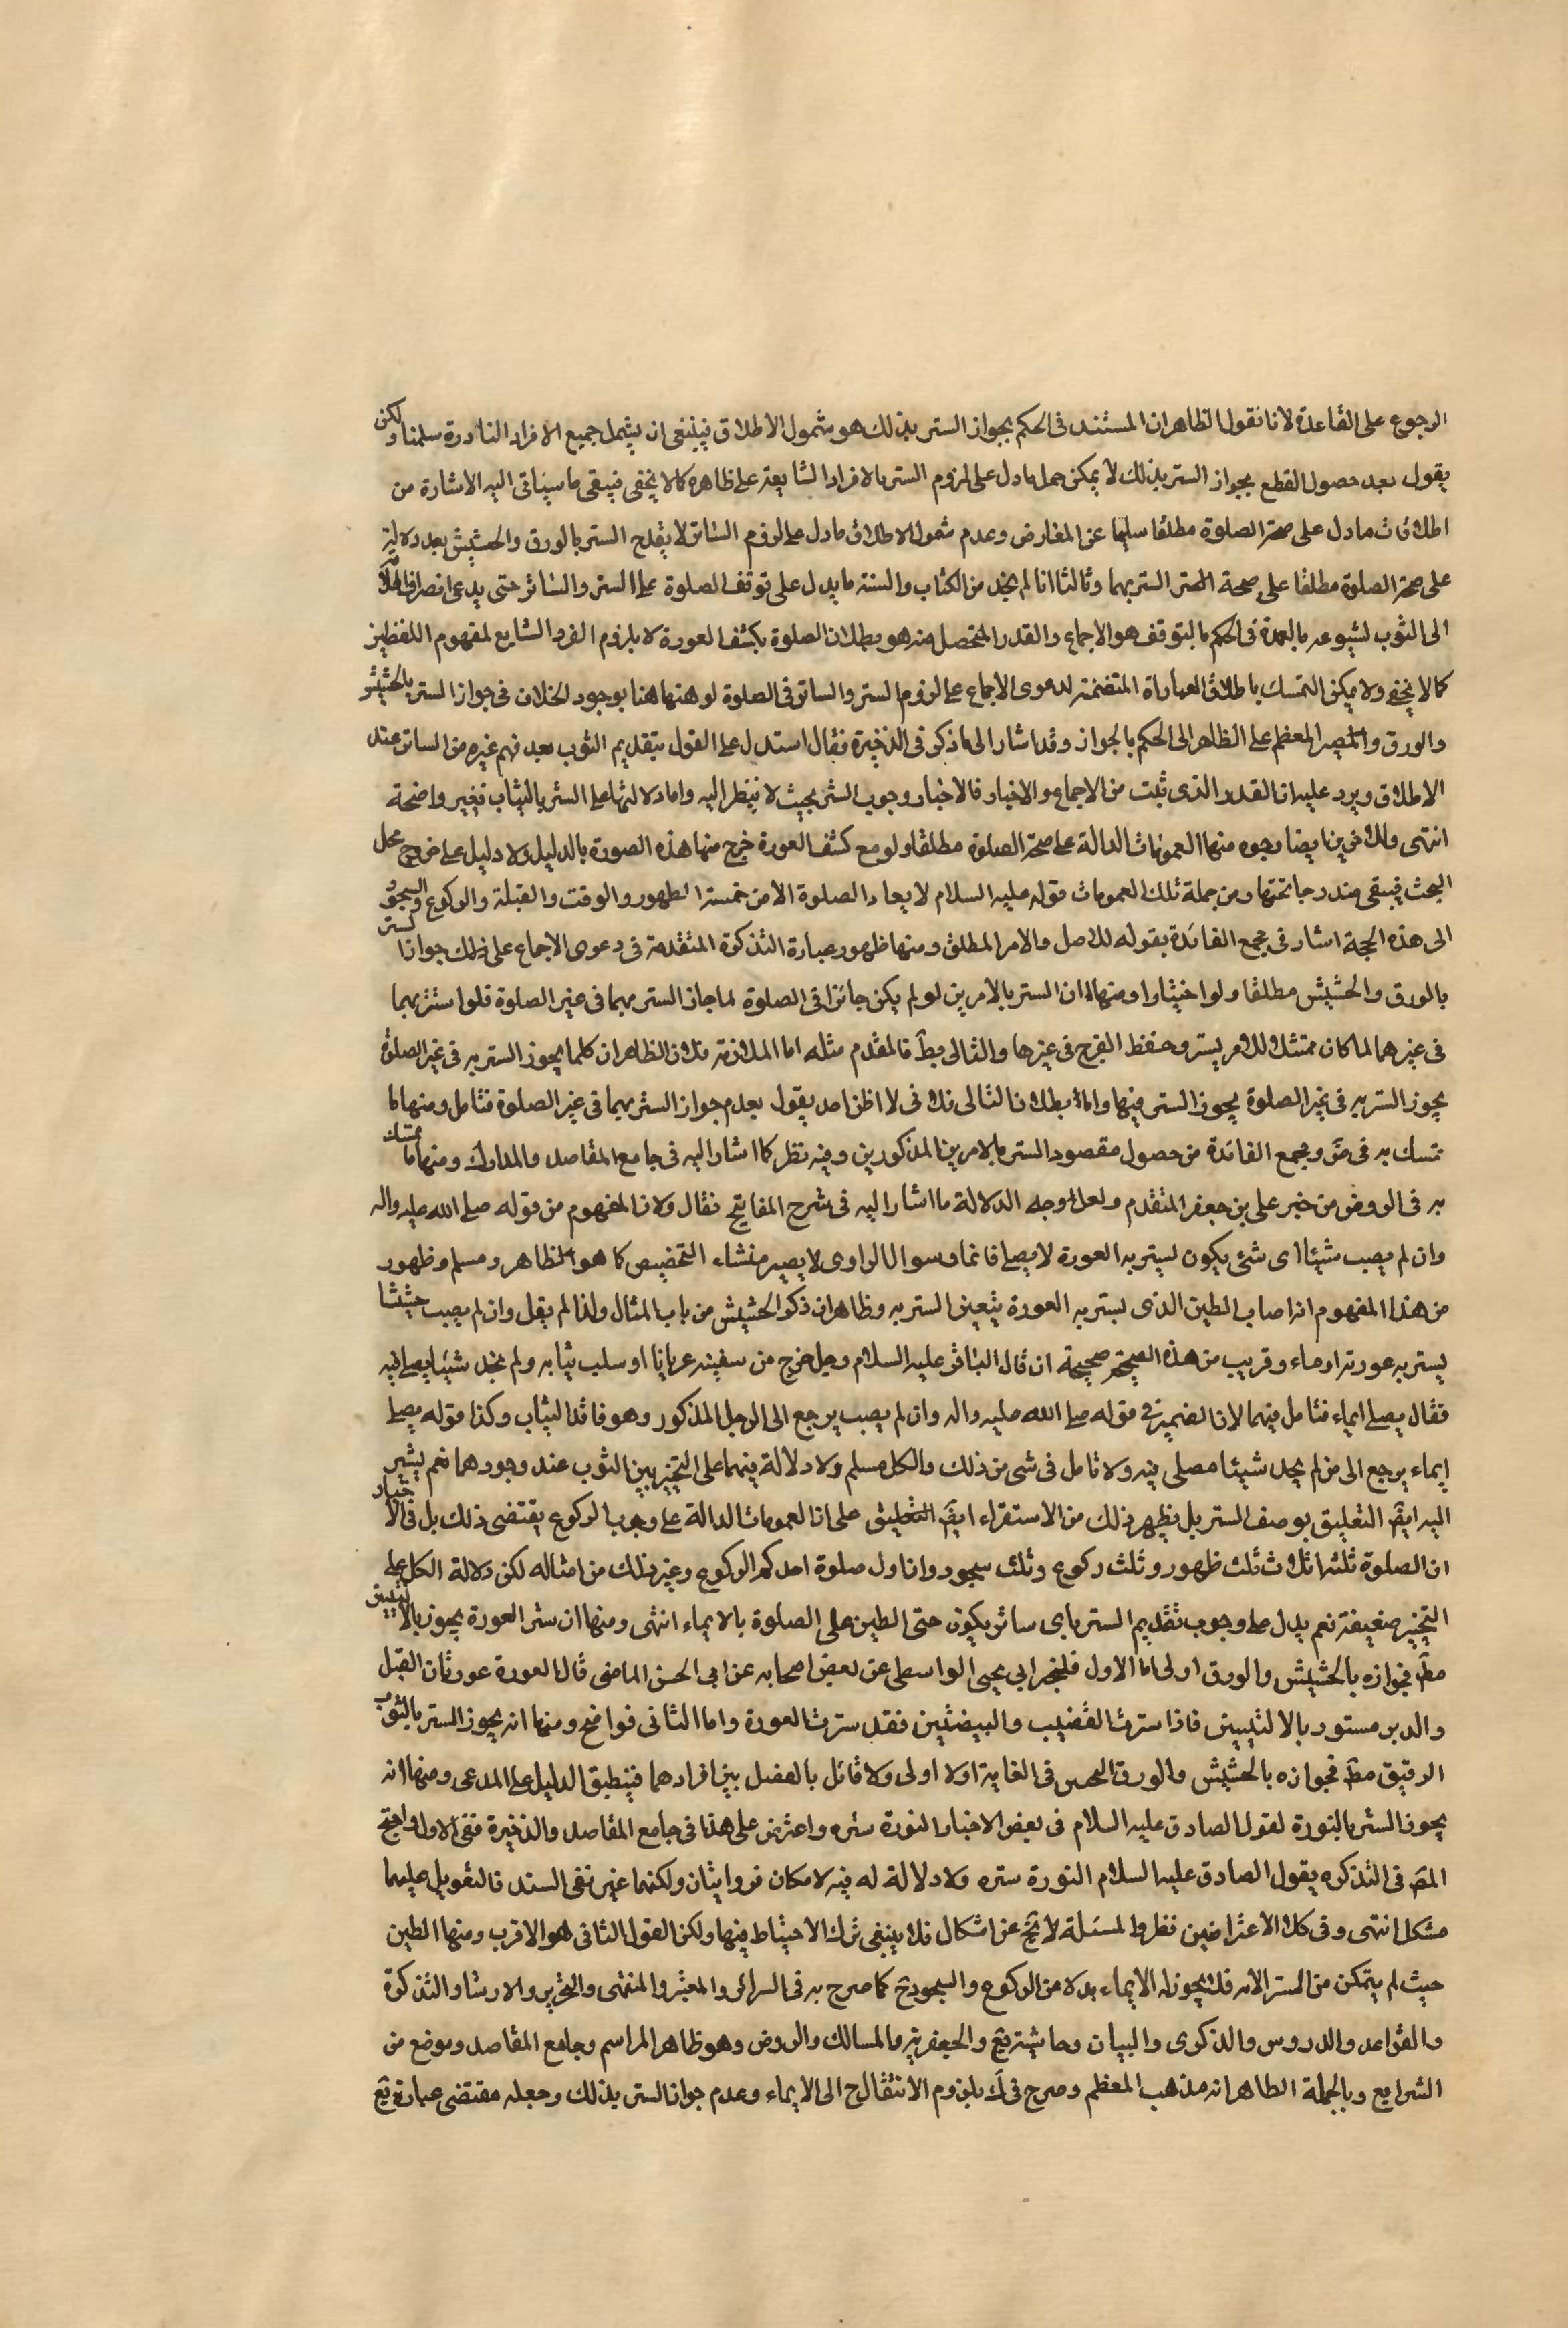 الرجوع على القاعدة لانا نقول الظاهر ان المستند فى الحكم بجواز الستر بذلك هو شمول الاطلاق فينبغى ان يشمل جميع الافراد النادرة سلمنا ولكن
يقول بعد حصول القطع بجواز الستر بذلك لا يمكن حمل ما دل على لزوم الستر بالافراد الشايعة على ظاهره كما لا يخفى فيبقى ما سياتى اليه الاشارة من
اطلاقات ما دل على صحة الصلوة مطلقا سليما عن المعارض وعدم شمول الاطلاق ما دل على لزوم الساتر لا يقدح الستر بالورق والحشيش بعد دلالته
على صحة الصلوة مطلقا على صحة الستر بهما وثالثا انا لم نجد من الكتاب والسنة ما يدل على توقف الصلوة على الستر والساتر حتى يدعى انصراف
الى الثوب لشيوعه بالعمدة فى الحكم بالتوقف هو الاجماع والقدر المتحصل منه هو بطلان الصلوة بكشف العورة لا بلزوم الفرد الشايع لمفهوم اللفظين
كما لا يخفى ولا يمكن التمسك باطلاق العباراة المتضمنة لدعوى الاجماع على لزوم الستر والساتر فى الصلوة لوهنها هنا بوجود الخلاف فى جواز الستر بالحشيش
والورق والمصير المعظم على الظاهر الى الحكم بالجواز وقد اشار الى ما ذكر فى الذخيرة فقال استدل على القول بتقديم الثوب بعد فهم غيره من الساتر عند
الاطلاق ويرد عليه ان القدر الذى ثبت من الاجماع والاخبار فالاخبار وجوب الستر بحيث لا ينظر اليه واما دلالتها على الستر بالثياب فغير واضحة
انتهى وللاخرين ايضا وجوه منها العمومات الدالة على صحة الصلوة مطلقا ولو مع كشف العورة خرج منها هذه الصورة بالدليل ولا دليل على خروج محل
البحث فيبقى مندرجا تحتها ومن جملة تلك العمومات قوله عليه السلام لا يعاد الصلوة الا من خمسة الطهور والوقت والقبلة والركوع والسجود
الى هذه الحجة اشار فى مجمع الفائدة بقوله للاصل والامر المطلق ومنها ظهور عبارة التذكرة المتقدمة فى دعوى الاجماع على ذلك جواز الستر
بالورق والحشيش مطلقا ولو اختيارا ومنها ان الستر بالامرين لو لم يكن جائزا فى الصلوة لما جاز الستر بهما فى غير الصلوة فلو استتر بهما
فى غيرهما لما كان ممتثلا للامر بستر وحفظ الفرج فى غيرها والتالى بط فالمقدم مثله اما الملازمة فلان الظاهر ان كلما يجوز الستر به فى غير الصلوة
يجوز الستر به فى غير الصلوة يجوز الستر فيها واما بطلان التالى فلانى لا اظن احد يقول بعدم جواز الستر بهما فى غير الصلوة فتامل ومنها ما
تمسك به فى ض ومجمع الفائدة من حصول مقصود الستر بالامرين المذكورين وفيه نظر كما اشار اليه فى جامع المقاصد والمدارك ومنها ما تمسك
به فى الروض من خبر على بن جعفر المتقدم ولعل وجه الدلالة ما اشار اليه فى شرح المفاتيح فقال ولان المفهوم من قوله صلى الله عليه واله
وان لم يصب شيئا اى شئ يكون ليستر به العورة لا يصلى قائما وسوال الراوى لا يصير منشاء التخصيص كما هو الظاهر ومسلم وظهور
من هذا المفهوم اذا صاب الطين الذى يستر به العورة يتعين الستر به وظاهر ان ذكر الحشيش من باب المثال ولذا لم يقل وان لم يصب حشيشا
يستر به عورته اوماء وقريب من هذه الصحيحة صحيحة ان قال الباقر عليه السلام رجل خرج من سفينة عريانا او سلب ثيابه ولم نجد شيئا يصلى فيه
فقال يصلى ايماء فتامل فيهما لان الضمير فى قوله صلى الله عليه واله وان لم يصب يرجع الى الرجل المذكور وهو فاقد الثياب وكذا قوله يصلى
ايماء يرجع الى من لم يجد شيئا مصلى فيه ولا تامل فى شى من ذلك والكل مسلم ولا دلالة فيهما على التخيير بين الثوب عند وجودهما نعم يشير
اليه ايض التعليق بوصف الستر بل يظهر ذلك من الاستقراء ايض التعليق على ان العمومات الدالة على وجوب الركوع يقتضى ذلك بل فى الاخبار
ان الصلوة ثلثة اثلاث ثلث طهور وثلث ركوع وثلث سجود وان اول صلوة احدكم الركوع وغير ذلك من امثاله لكن دلالة الكل على
التخيير ضعيفة نعم يدل على وجوب تقديم الستر باى ساتر يكون حتى الطين على الصلوة بالايماء انتهى ومنها ان ستر العورة يجوز بالاليتين
مط فجوازه بالحشيش والورق اولى اما الاول فلخبر ابى يحيى الواسطى عن بعض اصحابه عن ابى الحسن الماضى قال العورة عورتان القبل
والدبر مستور بالاليتين فاذا سترت القضيب والبيضتين فقد سترت العورة واما الثانى فواضح ومنها انه يجوز الستر بالثوب
الرقيق مط فجوازه بالحشيش والورق فى الغاية اولا اولى ولا قائل بالفصل بين افرادهما فينطبق الدليل على المدعى ومنها انه
يجوز الستر بالنورة لقول الصادق عليه السلام فى بعض الاخبار النورة ستره واعترض على هذا فى جامع المقاصد والذخيرة ففى الاول واحتج
المص فى التذكره بقول الصادق عليه السلام النورة ستره ولا دلالة له فيه لامكان ولكنها غير نقى السند فالتعويل عليهما
مشكل انتهى وفى كلا الاعتراضين نظر والمسئلة لا تخ عن اشكال فلا ينبغى ترك الاحتياط فيها ولكن القول الثانى هو الاقرب ومنها الطين
حيث لم يتمكن من الستر الا به فلا يجوز له الايماء بدلا عن الركوع والسجود ح كما صرح به فى السرائر والمعتبر والمنتهى والتحرير والارشاد والتذكرة
والقواعد والدروس والذكرى والبيان وحاشية يع والجعفرية والمسالك والروض وهو ظاهر المراسم وجامع المقاصد وموضع من
الشرايع وبالجملة الظاهر انه مذهب المعظم وصرح فى ك بلزوم الانتقال ح الى الايماء وعدم جواز الستر بذلك وجعله مقتضى عبارة يع